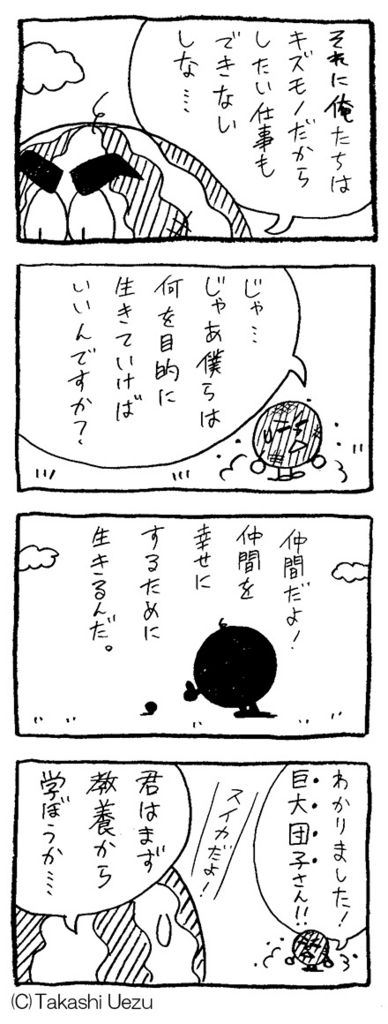 それに俺たちは
キズモノだから
したい仕事も
できない
しな…
じゃ…
じゃあ僕らは
何を目的に
生きていけば
いいんですか?
仲間だよ!
仲間を
幸せに
するために
生きるんだ。
わかりました!
巨大団子さん!!
スイカだよ!
君はまず
教養から
学ぼうか…
(C)Takashi Uezu